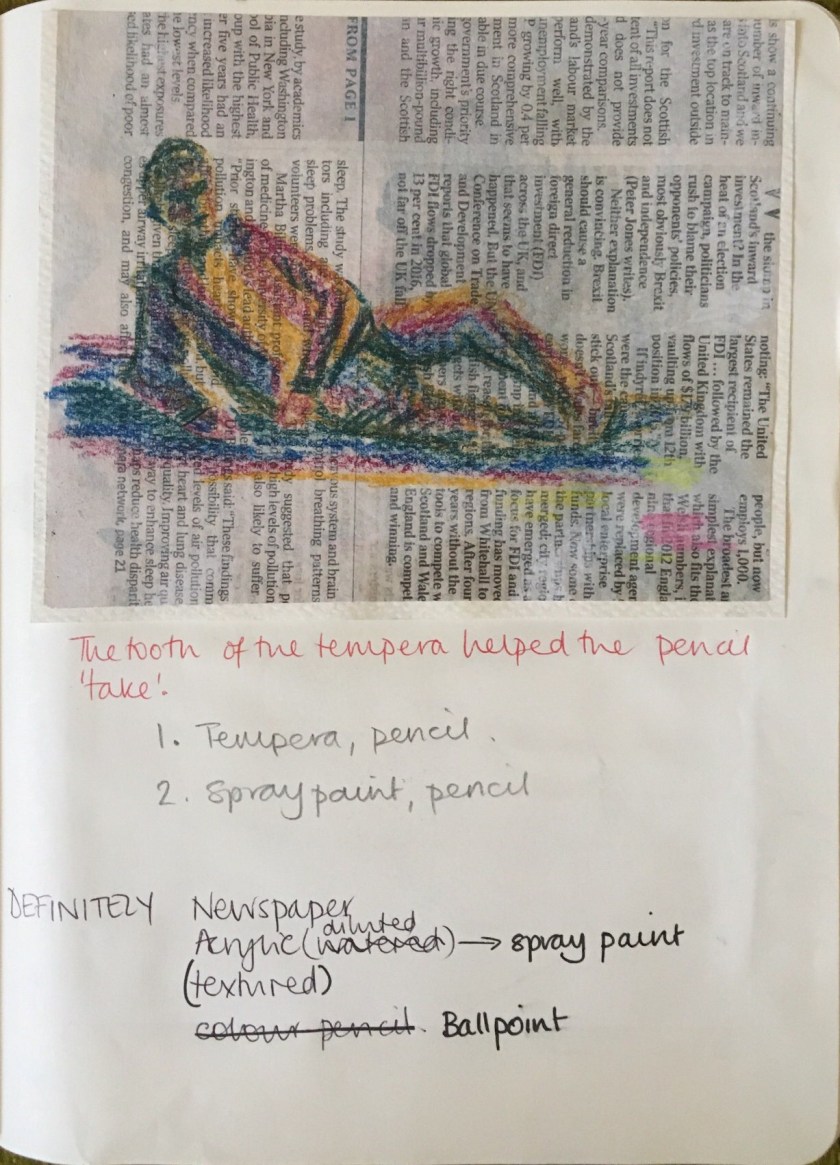 s show a continuing
number of inward in-
into Scotland and we
are on track to main-
as the top location in
d investment outside
n for the Scottish
“This report does not
tent of all investments
d does not provide
year comparisons.
demonstrated by the
and's labour market
perform well, with
unemployment falling
P growing by 0.4 per
more comprehensive
ment in Scotland in
able in due course
overnment's priority
ng the right condi-
ic growth, including
r multibillion-pound
n and the Scottish
the slump in
Scotland's inward
investment? In the
heat of an election
campaign, politicians
rush to blame their
opponents' policies,
most obviously Brexit
and independence
(Peter Jones writes).
Neither explanation
is convincing. Brexit
should cause a
general reduction in
foreign direct
investment (FDI)
across the UK, and
that seems to have
happened. But the U
Conference on Trade
and Development
reports that global
FDI flows dropped b
13 per cent in 2016,
not far off the UK fall
noting: “The United
States remained the
largest recipient of
FDI ... followed by the
United Kingdom with
flows of $179 billion,
vaulting up from 12th
position in
people, but now
employs 1,000.
The broadest a
simplest explanat
which also fits th
numbers, i
2012 Engla
regional
development agen
were replaced by
local enterprise
partnerships with
funds. Now some
the parts
merged; city regio
have emerged as
focus for FDI and
funding has move
from Whitehall to
regions. After four
years without the
tools to compete w
Scotland and Wale
England is compet
and winning.
FROM PAGE 1
e study, by academics
ncluding Washington
bia in New York and
ool of Public Health,
oup with the highest
er five years had an
increased likelihood
ncy when compared
e lowest levels.
he highest exposures
ates had an almost
ed likelihood of poor
sleep. The study
tors including
sleep problems
volunteers were
Martha
of medicine
ington and
“Prior
pollution
upper airway
congestion, and may also affe
nervous system and brain
control breathing patterns
suggested that p
high levels of pollution
also likely to suffer
said: “These findings
possibility that comm
levels of air pollution
heart and lung disease
quality. Improving air qu
way to enhance sleep he
reduce health disparit
network, page 21
The tooth of the tempera helped the pencil
'take'.
1. Tempera, pencil.
2. Spray paint, pencil
DEFINITELY Newspaper
diluted
Acrylic (watered) → spray paint
(textured)
colour pencil. Ballpoint